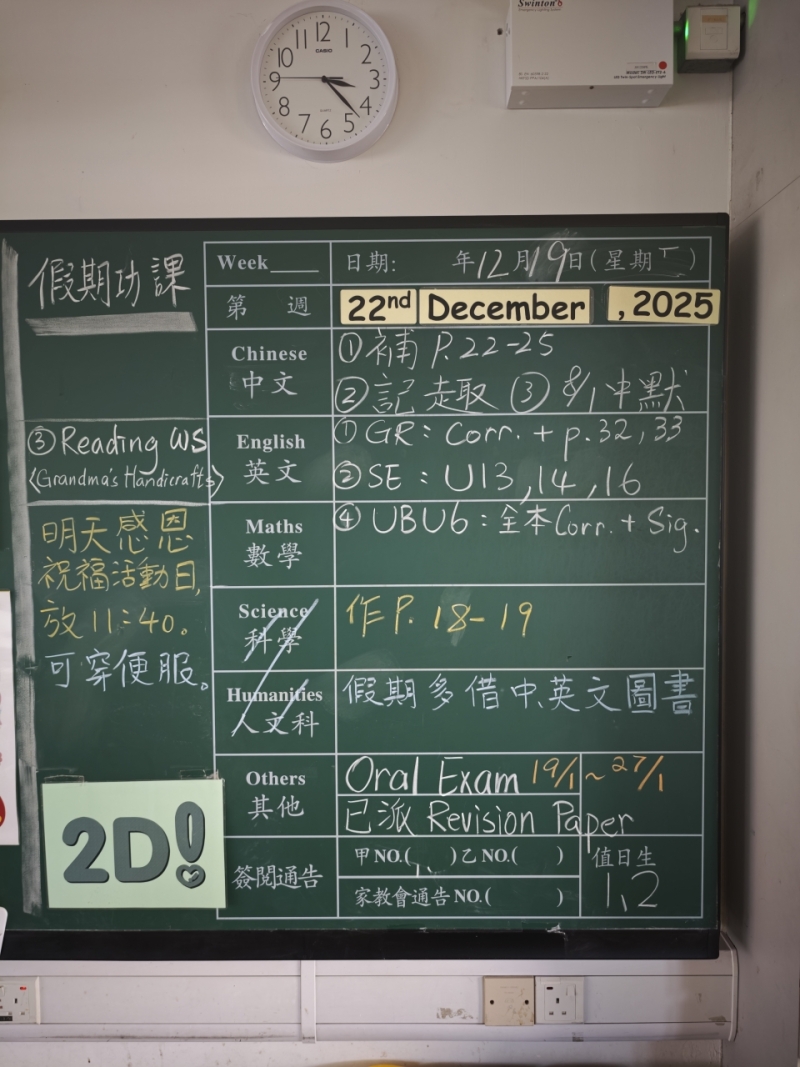 12
11
1
10
2
9
3
8
4
7
5
6
CASIO
QUARTZ
Swinton
Emergency Lighting System
假期功課
Week
日期: 年12月19日(星期五)
第 週
22nd December , 2025
Chinese
中文
①補 P.22-25
②記 走趣 ③ 8/1 中默
③Reading WS
〈Grandma's Handicrafts〉
English
英文
①GR: Corr. + p.32, 33
②SE : U13, 14, 16
Maths
數學
④ UBU6: 全本Corr. + Sig.
明天感恩
祝福活動日,
放 11:40。
可穿便服。
Science
科學
作P. 18-19
Humanities
人文科
假期多借中、英文圖書
Others
其他
Oral Exam 19/1 ~ 27/1
已派 Revision Paper
2D!
簽閱通告
甲NO.( )乙NO.( )
家教會通告NO.( )
值日生
1, 2